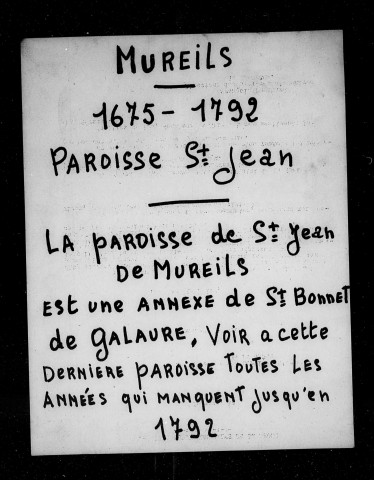 MUREILS
1675 - 1792
PAROISSE St Jean
LA PAROISSE de St Jean
DE MUREILS
EST une ANNEXE de St BONNET
de GALAURE, VOIR a cette
DERNIERE PAROISSE TOUTES LES
ANNÉES qui MANQUENT Jusqu'en
1792